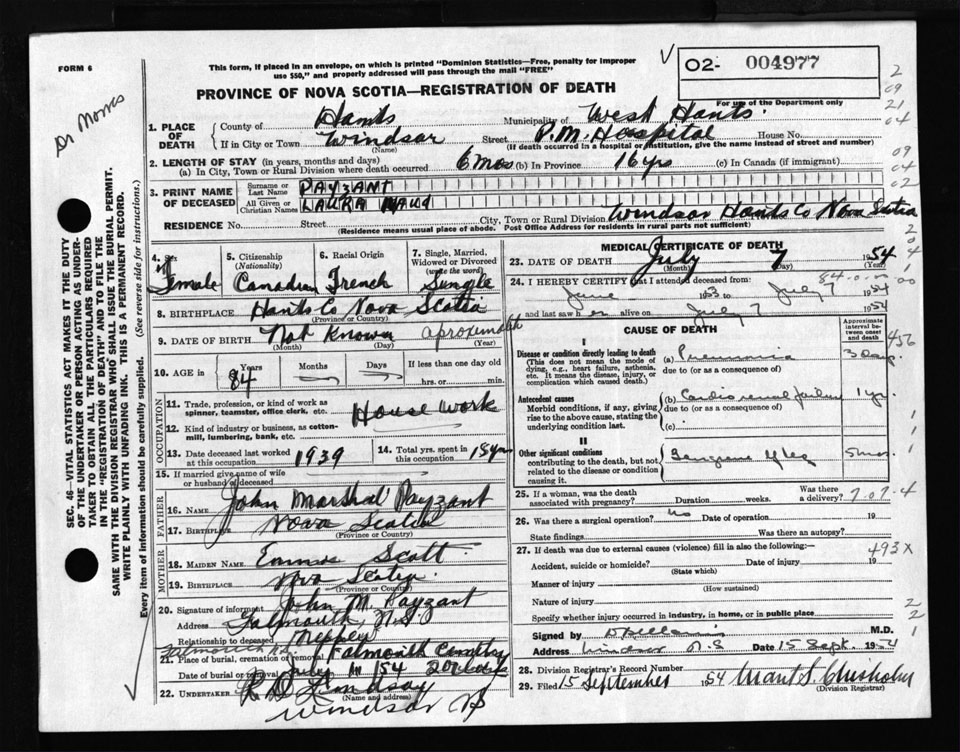 FORM 6
This form, if placed in an envelope, on which is printed "Dominion Statistics—Free, penalty for improper
use $50," and properly addressed will pass through the mail "FREE"
O2- 004977
For use of the Department only
PROVINCE OF NOVA SCOTIA—REGISTRATION OF DEATH
Dr Morris
1. PLACE OF DEATH
County of Hants Municipality of West Hants
If in City or Town Windsor Street P.M. Hospital House No.
(Name) (If death occurred in a hospital or institution, give the name instead of street and number)
2. LENGTH OF STAY (in years, months and days)
(a) In City, Town or Rural Division where death occurred 6 mos (b) In Province 16 yrs (c) In Canada (if immigrant)
3. PRINT NAME OF DECEASED
Surname or Last Name PAYZANT
All Given or Christian Names LAURA MAUD
RESIDENCE No. Street City, Town or Rural Division Windsor Hants Co Nova Scotia
(Residence means usual place of abode. Post Office Address for residents in rural parts not sufficient)
4. Female
5. Citizenship (Nationality) Canadian
6. Racial Origin French
7. Single, Married, Widowed or Divorced (write the word) Single
8. BIRTHPLACE Hants Co Nova Scotia
(Province or Country)
9. DATE OF BIRTH Not Known
(Month) (Day) (Year)
10. AGE in Years 84 Months Days If less than one day
hrs. or min.
OCCUPATION
11. Trade, profession, or kind of work as spinner, teamster, office clerk, etc. House work
12. Kind of industry or business, as cotton-mill, lumbering, bank, etc.
13. Date deceased last worked at this occupation 1939
14. Total yrs. spent in this occupation 15 yrs
15. If married give name of wife or husband of deceased
FATHER
16. NAME John Marshal Payzant
17. BIRTHPLACE Nova Scotia
(Province or Country)
MOTHER
18. MAIDEN NAME Emma Scott
19. BIRTHPLACE Nova Scotia
(Province or Country)
20. Signature of informant John M. Payzant
Address Falmouth, N.S.
Relationship to deceased Nephew
21. Place of burial, cremation or removal Falmouth Cemetery
Date of burial or removal July
22. UNDERTAKER R D Lindsay
(Name and address)
Windsor NS
MEDICAL CERTIFICATE OF DEATH
23. DATE OF DEATH July 7 1954
(Month) (Day) (Year)
24. I HEREBY CERTIFY that I attended deceased from
June 1953 to July 7 1954
and last saw her alive on July 7 1954
CAUSE OF DEATH
Approximate interval between onset and death
I
Disease or condition directly leading to death
(This does not mean the mode of dying, e.g., heart failure, asthenia, etc. It means the disease, injury, or complication which caused death.)
(a) Pneumonia 3 days
due to (or as a consequence of)
Antecedent causes
Morbid conditions, if any, giving rise to the above cause, stating the underlying condition last.
(b) Cardio renal failure 1 yr.
due to (or as a consequence of)
(c)
II
Other significant conditions
contributing to the death, but not related to the disease or condition causing it.
Gangrene of leg 5 mos.
25. If a woman, was the death associated with pregnancy? Duration weeks. Was there a delivery?
26. Was there a surgical operation? no Date of operation 19
State findings Was there an autopsy?
27. If death was due to external causes (violence) fill in also the following:—
Accident, suicide or homicide? Date of injury 19
(State which)
Manner of injury
(How sustained)
Nature of injury
Specify whether injury occurred in industry, in home, or in public place
Signed by M.D.
Address Windsor N.S Date 15 Sept. 1954
28. Division Registrar's Record Number
29. Filed 15 September 1954
(Division Registrar)
456
493X
SEC. 46—VITAL STATISTICS ACT MAKES IT THE DUTY
OF THE UNDERTAKER OR PERSON ACTING AS UNDER-
TAKER TO OBTAIN ALL THE PARTICULARS REQUIRED
IN THE "REGISTRATION OF DEATH" AND TO FILE THE
SAME WITH THE DIVISION REGISTRAR WHO SHALL ISSUE THE BURIAL PERMIT.
WRITE PLAINLY WITH UNFADING INK. THIS IS A PERMANENT RECORD.
Every item of information should be carefully supplied. (See reverse side for instructions.)